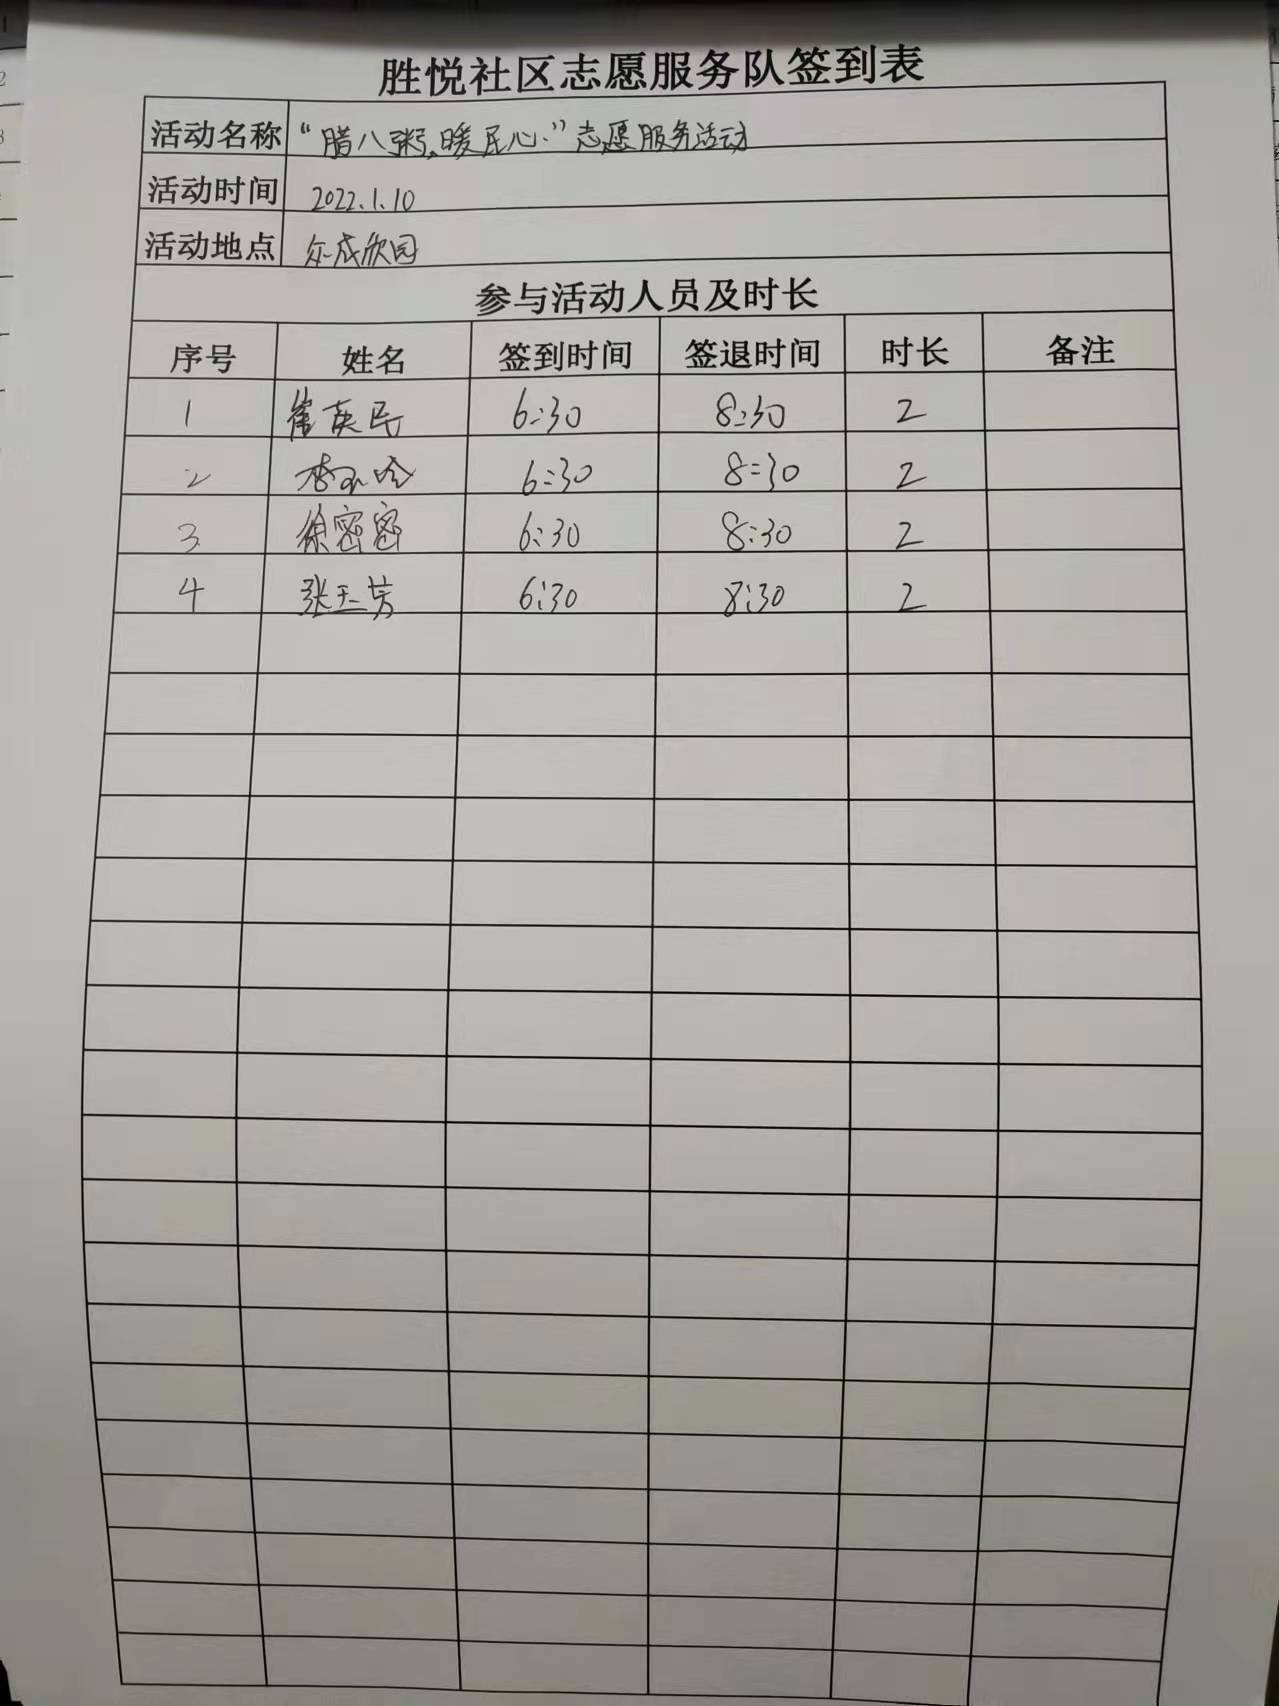 胜悦社区志愿服务队签到表
活动名称 “腊八粥,暖民心”志愿服务活动
活动时间 2022.1.10
活动地点 尔成欣园
参与活动人员及时长
序号 姓名 签到时间 签退时间 时长 备注
1 崔英民 6:30 8:30 2
2 6:30 8:30 2
3 徐密密 6:30 8:30 2
4 张玉芳 6:30 8:30 2